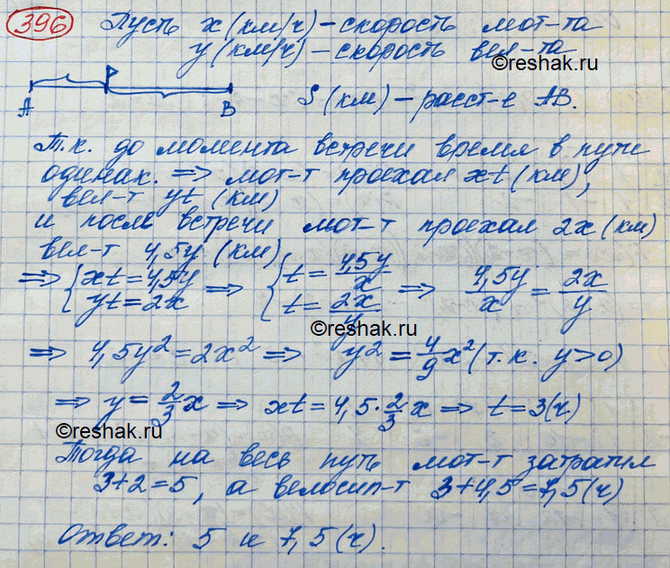 396 Пусть x (км/ч) – скорость мот-та
y (км/ч) – скорость вел-та
©reshak.ru
©reshak.ru
A P B S (км) – расст-е AB.
Т.к. до момента встречи время в пути
одинак. ⇒ мот-т проехал xt (км),
вел-т yt (км)
и после встречи мот-т проехал 2x (км)
вел-т 4,5y (км)
⇒ {xt = 4,5y; yt = 2x ⇒ {t = 4,5y/x; t = 2x/y ⇒ 4,5y/x = 2x/y
©reshak.ru
⇒ 4,5y² = 2x² ⇒ y² = 4/9 x² (т.к. y>0)
⇒ y = 2/3 x ⇒ xt = 4,5 · 2/3 x ⇒ t = 3 (ч)
©reshak.ru
Тогда на весь путь мот-т затратил
3+2=5, а велосип-т 3+4,5=7,5 (ч)
©reshak.ru
Ответ: 5 и 7,5 (ч).